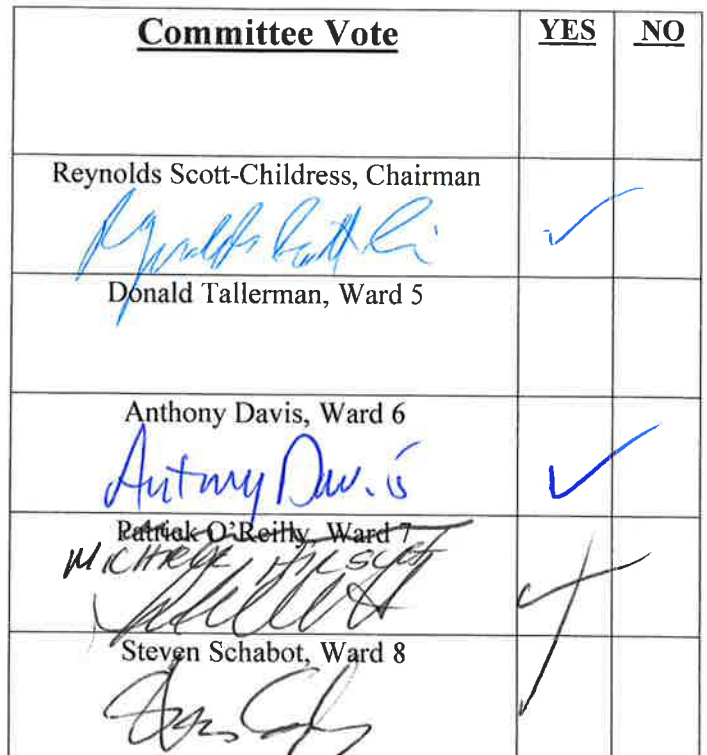 Committee Vote YES NO
Reynolds Scott-Childress, Chairman
Donald Tallerman, Ward 5
Anthony Davis, Ward 6
Antony Davis
Patrick O'Reilly, Ward 7
Steven Schabot, Ward 8